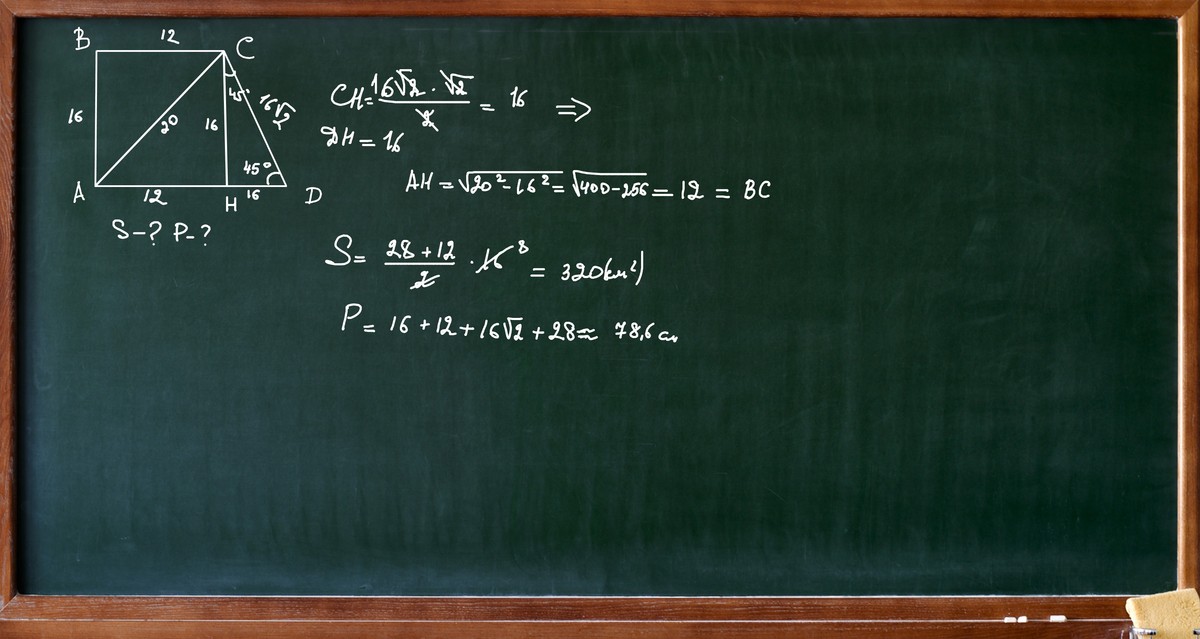 B 12 C
16 20 16 45° 16√2
45°
A 12 H 16 D
S-? P-?
CH = 16√2 · √2 / 2 = 16 ⇒
DH = 16
AH = √20² - 16² = √400 - 256 = 12 = BC
S = 28 + 12 / 2 · 16 8 = 320 (см²)
P = 16 + 12 + 16√2 + 28 ≈ 78,6 см